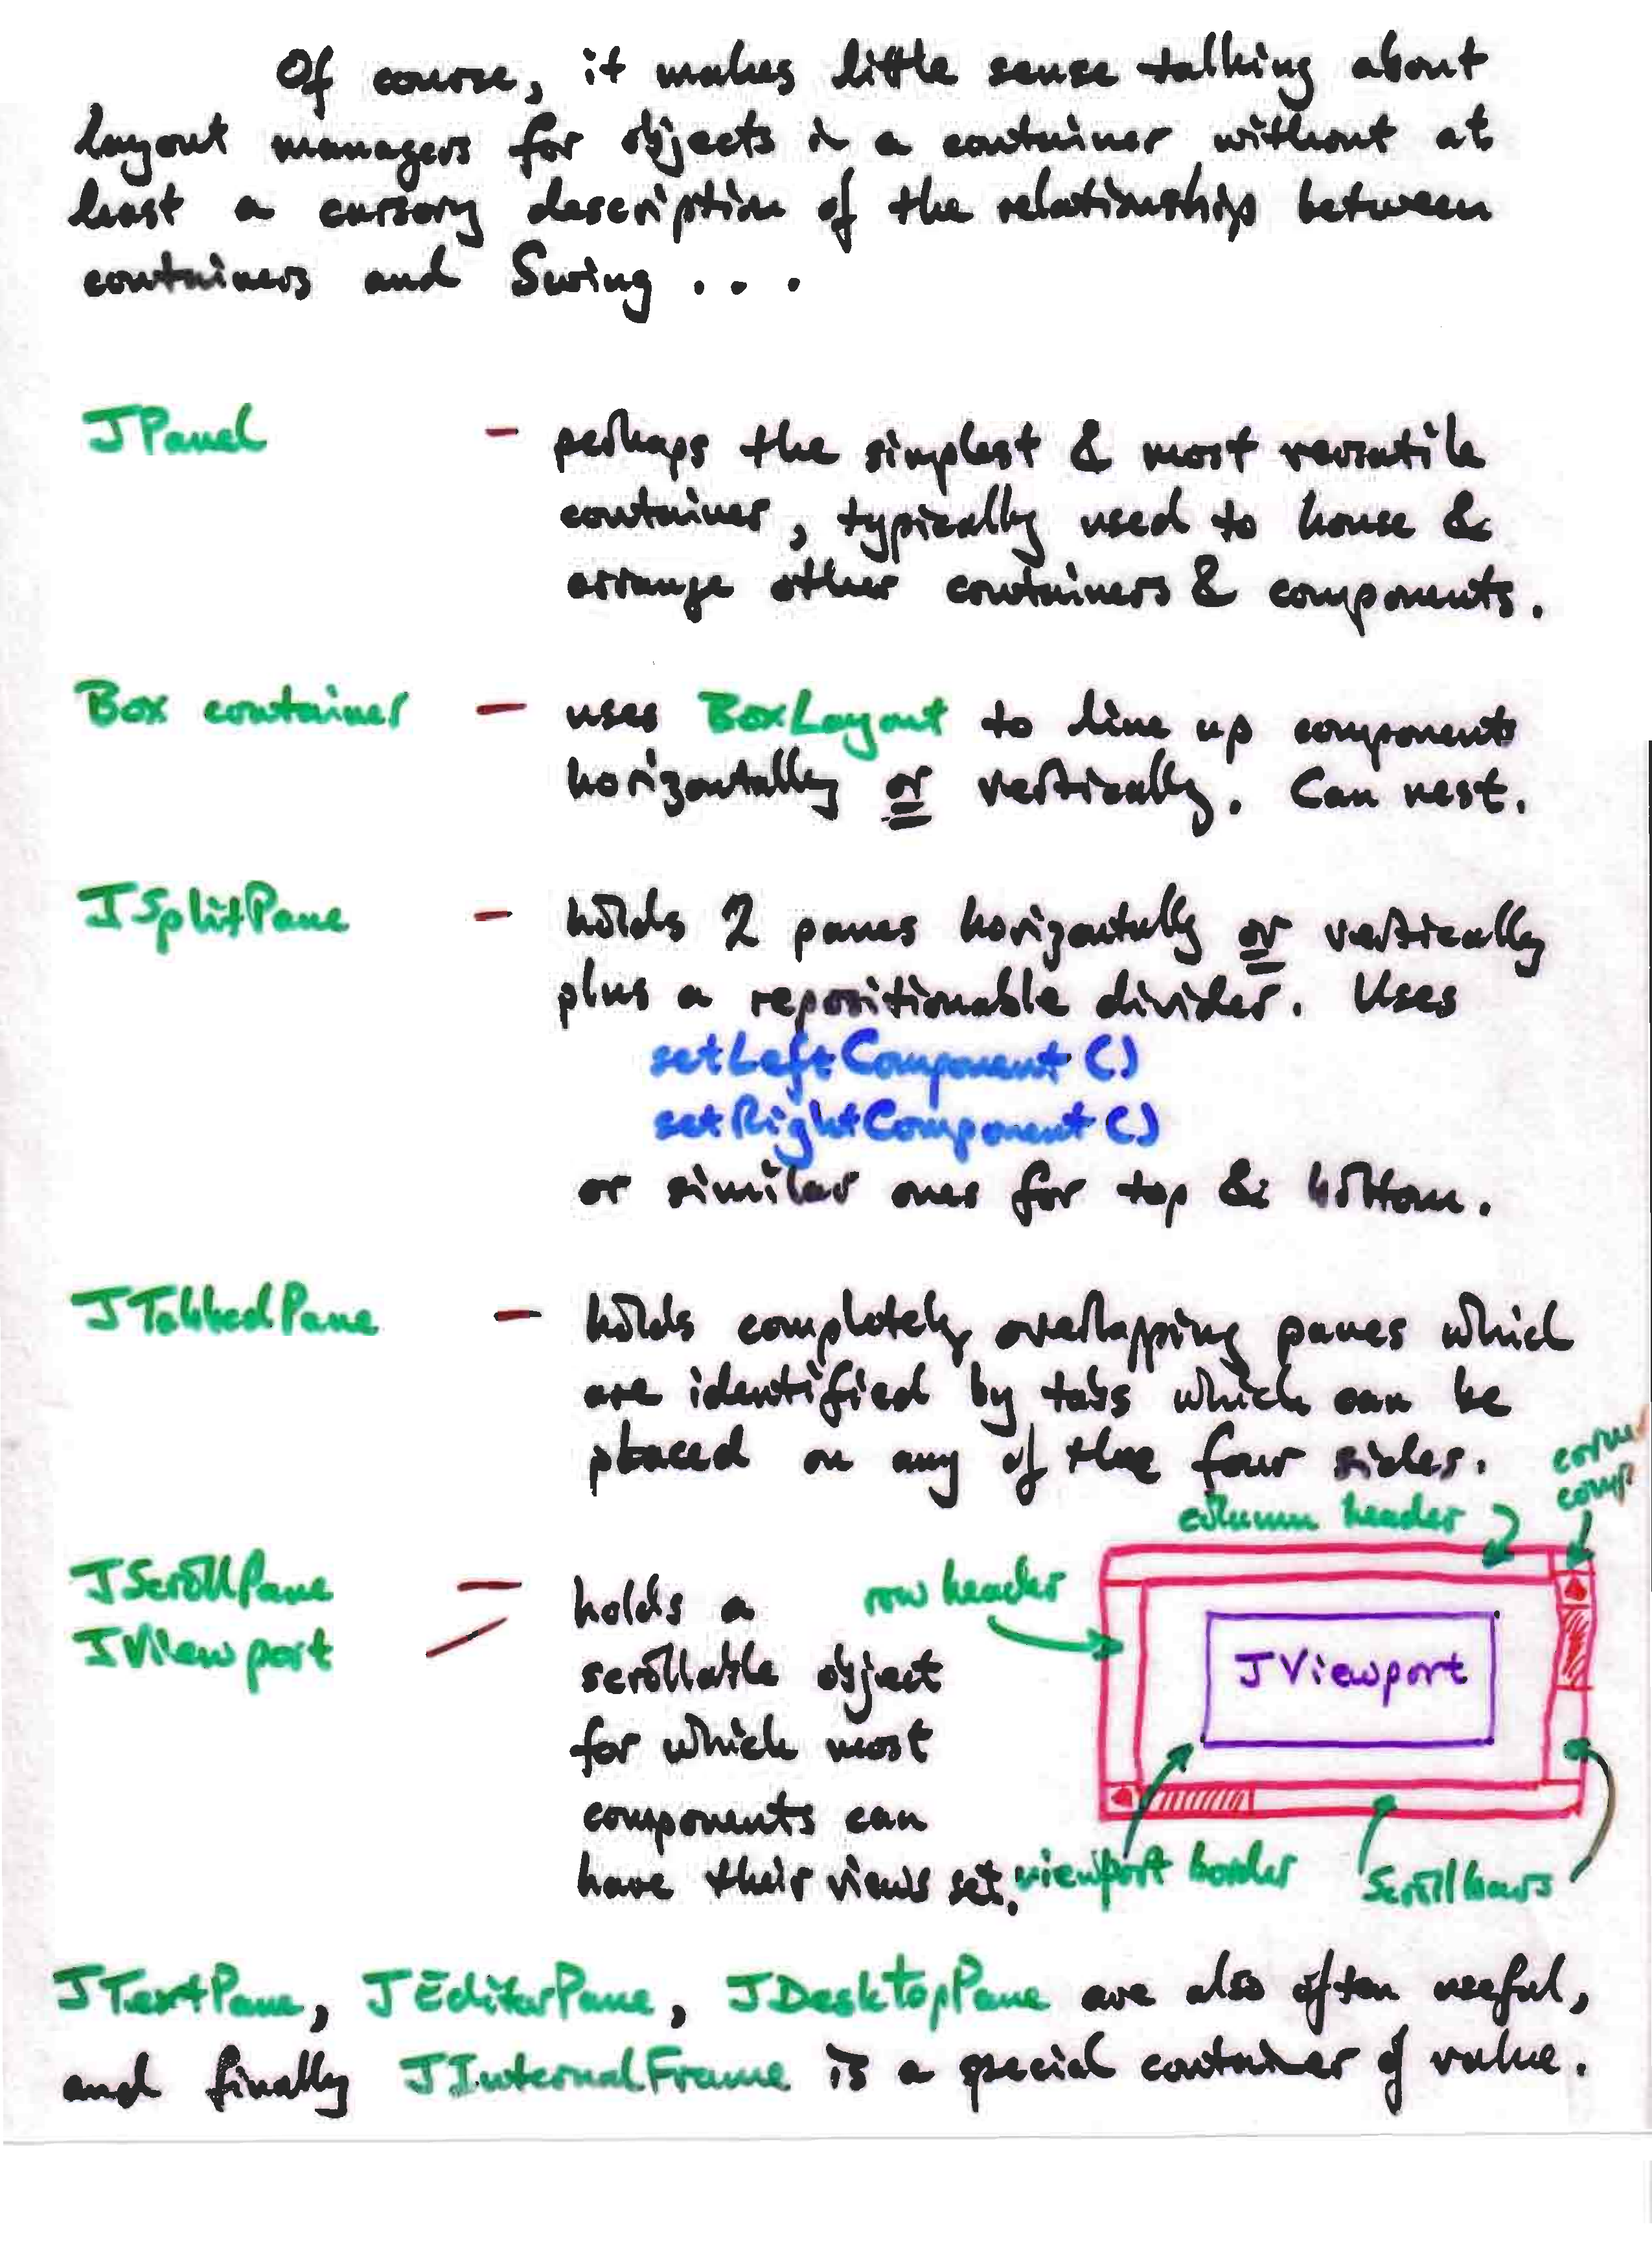 Of course, it makes little sense talking about
layout managers for objects in a container without at
least a cursory description of the relationship between
containers and Swing . . .
JPanel - perhaps the simplest & most versatile
container, typically used to house &
arrange other containers & components.
Box container - uses BoxLayout to line up components
horizontally or vertically. Can nest.
JSplitPane - holds 2 panes horizontally or vertically
plus a repositionable divider. Uses
setLeftComponent()
setRightComponent()
or similar ones for top & bottom.
JTabbedPane - holds completely overlapping panes which
are identified by tabs which can be
placed on any of the four sides.
JScrollPane
JViewport
- holds a
scrollable object
for which most
components can
have their views set.
corner
comp
column header
row header
JViewport
viewport border
Scrollbars
JTextPane, JEditorPane, JDesktopPane are also often useful,
and finally JInternalFrame is a special container of value.